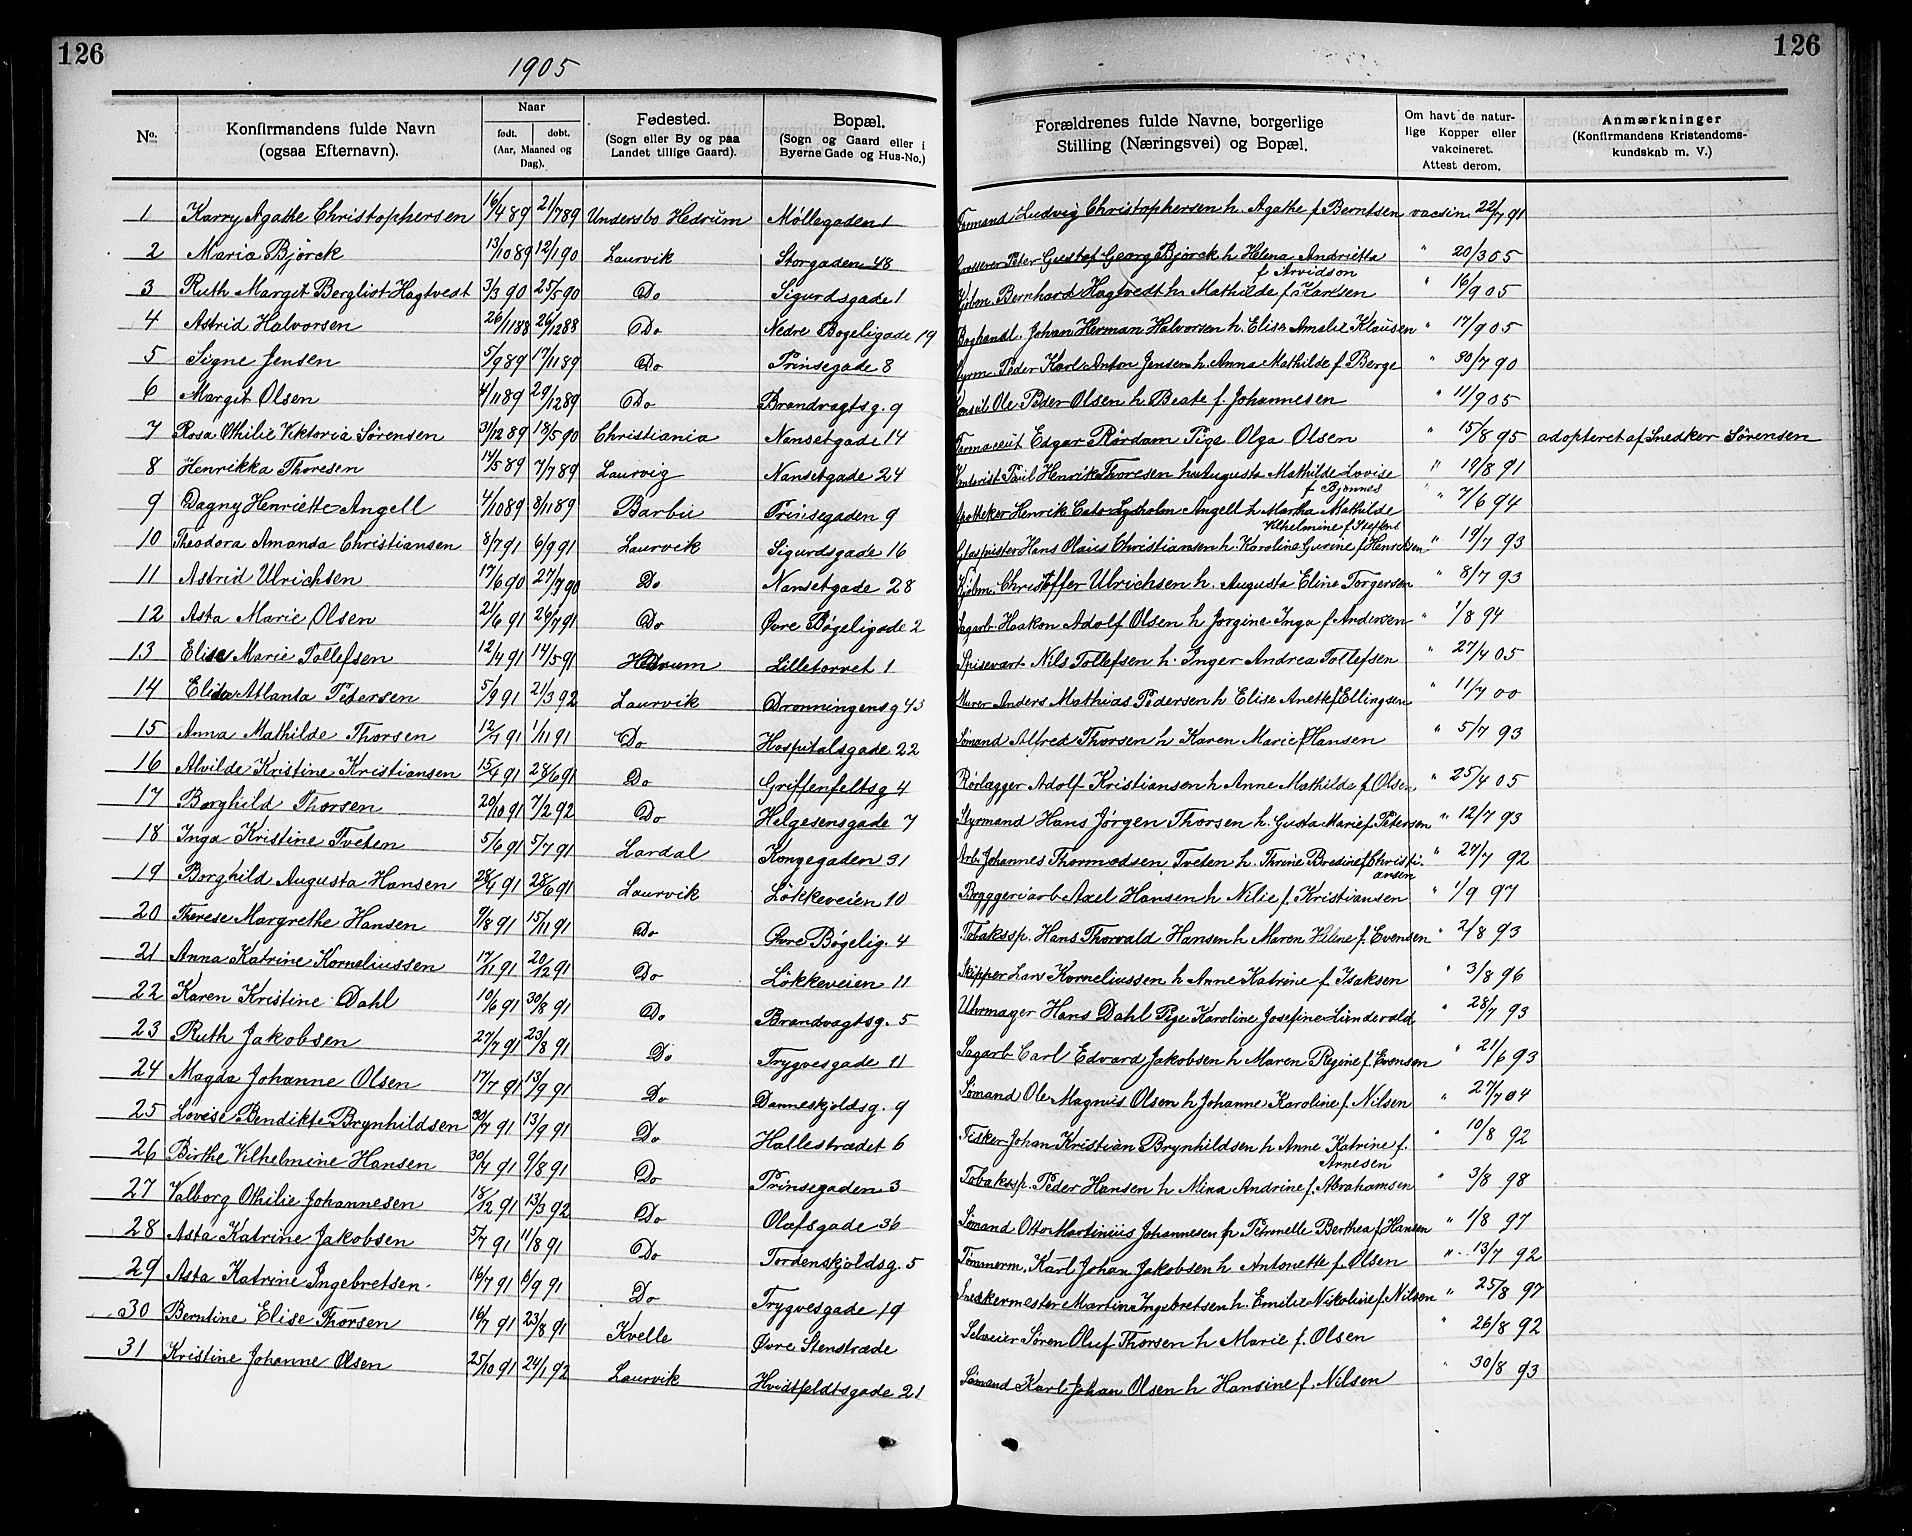 126
126
1905
No.
Konfirmandens fulde Navn
(ogsaa Efternavn).
Naar
født. døbt.
(Aar, Maaned og Dag).
Fødested.
(Sogn eller By og paa
Landet tillige Gaard).
Bopæl.
(Sogn og Gaard eller i
Byerne Gade og Hus-No.)
Forældrenes fulde Navne, borgerlige
Stilling (Næringsvei) og Bopæl.
Om havt de natur-
lige Kopper eller
vakcineret.
Attest derom.
Anmærkninger
(Konfirmandens Kristendoms-
kundskab m. V.)
1 Karry Agathe Christophersen 16/4 89 21/7 89 Undersbo Hedrum Møllegaden 1 Formand Ludvig Christophersen h. Agathe f Berntsen vacsin. 22/7 91
2 Maria Björck 13/10 89 12/1 90 Laurvik Storgaden 48 Grosserer Peter Gustaf Georg Björck h Helena Andrietta f Arvidson " 20/3 05
3 Ruth Margit Berglist Hagtvedt 3/3 90 25/5 90 Do Sigurdsgade 1 Kjøbm. Bernhard Hagtvedt h. Mathilde f. Karlsen " 16/9 05
4 Astrid Halvorsen 26/11 88 26/12 88 Do Nedre Bøgeligade 19 Boghandl. Johan Herman Halvorsen h. Elise Amalie Klausen " 17/9 05
5 Signe Jensen 5/9 89 17/11 89 Do Prinsegade 8 Styrm. Peder Karl Anton Jensen h. Anna Mathilde f Berge " 30/7 90
6 Margit Olsen 4/11 89 29/12 89 Do Brandvagtsg. 9 Konsul Ole Peder Olsen h Beate f. Johannesen " 11/9 05
7 Rosa Othilie Viktoria Sørensen 31/12 89 18/5 90 Christiania Nansetgade 14 Farmaceut Edgar Rördam Pige Olga Olsen " 15/8 95 adopteret af Snedker Sörensen
8 Henrikka Thoresen 14/5 89 7/7 89 Laurvig Nansetgade 24 Kontorist Paul Henrik Thoresen h. Augusta Mathilde Lovise f Bjønnes " 19/8 91
9 Dagny Henriette Angell 4/10 89 8/11 89 Barbu Prinsegaden 9 Apotheker Henrik Cato Lysholm Angell h Martha Mathilde Vilhelmine f. Steffens " 7/6 94
10 Theodora Amanda Christiansen 8/7 91 6/9 91 Laurvik Sigurdsgade 16 Glaspuster Hans Olaus Christiansen h. Karoline Gurine f. Henriksen " 19/7 93
11 Astrid Ulrichsen 17/6 90 27/7 90 Do Nansetgade 28 Kjøbm. Christoffer Ulrichsen h. Augusta Eline Torgersen " 8/7 93
12 Asta Marie Olsen 21/6 91 26/7 91 Do Øvre Bøgeligade 2 Sagarb. Haakon Adolf Olsen h Jorgine Inga f Andersen " 1/8 94
13 Elise Marie Tollefsen 12/4 91 14/5 91 Hedrum Lilletorvet 1 Spisevært Nils Tollefsen h. Inger Andrea Tollefsen " 27/4 05
14 Elida Atlanta Pedersen 5/9 91 21/3 92 Laurvik Dronningensg 43 Murer Anders Mathias Pedersen h Elise Anette f Ellingsen " 11/7 00
15 Anna Mathilde Thorsen 12/7 91 1/11 91 Do Hospitalsgade 22 Sømand Alfred Thorsen h Karen Marie f Hansen " 5/7 93
16 Alvilde Kristine Kristiansen 15/4 91 28/6 91 Do Griffenfeltsg 4 Rørlægger Adolf Kristiansen h Anne Mathilde f Olsen " 25/4 05
17 Borghild Thorsen 20/10 91 7/2 92 Do Helgesensgade 7 Styrmand Hans Jörgen Thorsen h. Gusta Marie f. Petersen " 12/7 93
18 Inga Kristine Tveten 5/6 91 5/7 91 Lardal Kongegaden 31 Arb. Johannes Thormodsen Tveten h. Thrine Bredine f Christiansen " 27/7 92
19 Borghild Augusta Hansen 28/4 91 28/6 91 Laurvik Løkkeveien 10 Bryggeriarb Axel Hansen h Nilie f. Kristiansen " 1/9 97
20 Therese Margrethe Hansen 9/8 91 15/11 91 Do Øvre Bøgelig. 4 Tobakssp. Hans Thorvald Hansen h Maren Helene f. Evensen " 2/8 93
21 Anna Katrine Korneliussen 17/11 91 20/12 91 Do Løkkeveien 11 Skipper Lars Korneliussen h Anne Katrine f Isaksen " 3/8 96
22 Karen Kristine Dahl 10/6 91 30/8 91 Do Brandvagtsg. 5 Uhrmager Hans Dahl Pige Karoline Josefine Lundevald " 28/7 93
23 Ruth Jakobsen 27/7 91 23/8 91 Do Trygvesgade 11 Sagarb Carl Edvard Jakobsen h Maren Regine f. Evensen " 21/6 93
24 Magda Johanne Olsen 17/7 91 13/9 91 Do Danneskjoldsg. 9 Sømand Ole Magnus Olsen h Johanne Karoline f Nilsen " 27/7 04
25 Lovise Bendikte Brynhildsen 30/7 91 13/9 91 Do Hallestrædet 6 Fisker Johan Kristian Brynhildsen h Anne Katrine f. Arnesen " 10/8 92
26 Birthe Vilhelmine Hansen 30/4 91 9/8 91 Do Prinsegaden 3 Tobaksp. Peder Hansen h Mina Andrine f. Abrahamsen " 3/8 98
27 Valborg Othilie Johannesen 18/12 91 13/3 92 Do Olafsgade 36 Sømand Otto Martinius Johannesen h Petronelle Berthea f Hansen " 1/8 97
28 Asta Katrine Jakobsen 5/7 91 11/8 91 Do Tordenskjoldsg. 5 Tømmerm. Karl Johan Jakobsen h Antonette f. Olsen " 13/7 92
29 Asta Katrine Ingebretsen 16/7 91 6/9 91 Do Trygvesgade 19 Snedkermester Martin Ingebretsen h. Emilie Nikoline f. Nilsen " 25/8 97
30 Berntine Elise Thorsen 16/7 91 23/8 91 Kvelle Øvre Stenstræde Selveier Sören Oluf Thorsen h Marie f. Olsen " 26/8 92
31 Kristine Johanne Olsen 25/10 91 24/1 92 Laurvik Hvidtfeldtsgade 21 Sømand Karl Johan Olsen h Hansine f. Nilsen " 30/8 93